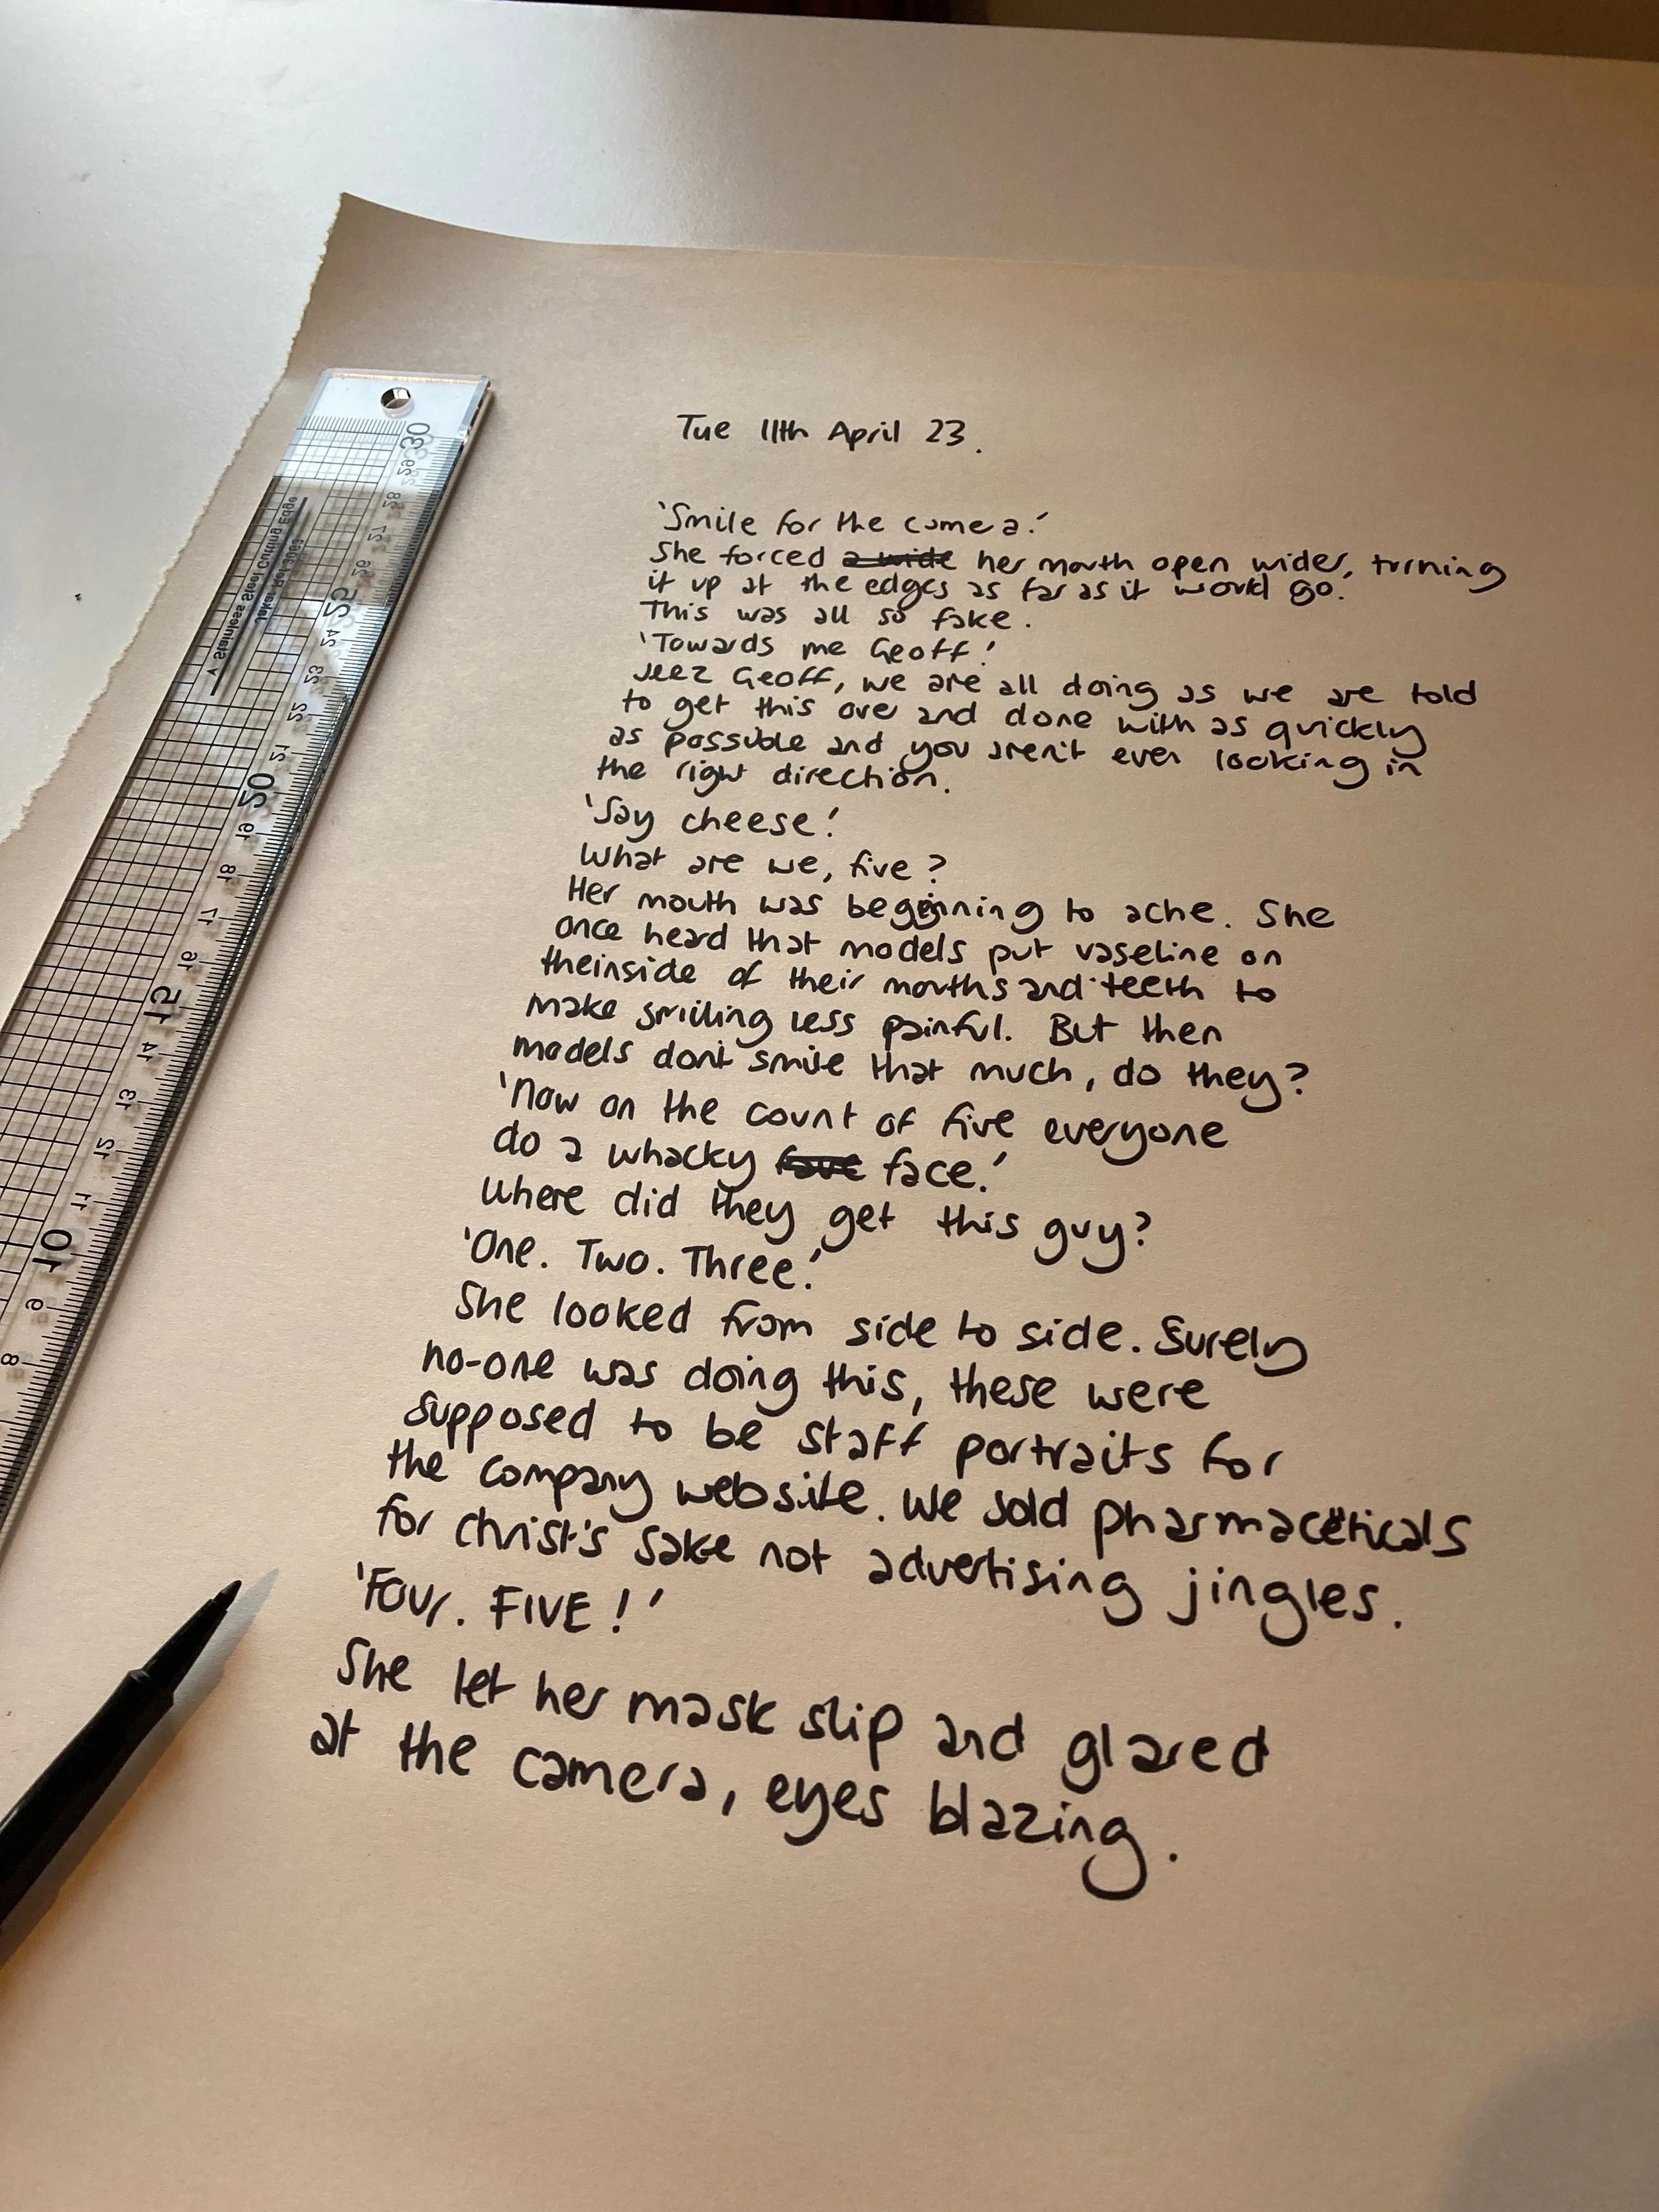 Tue 11th April 23.
'Smile for the camera.'
She forced a wide her mouth open wider, turning
it up at the edges as far as it would go.
This was all so fake.
'Towards me Geoff!'
Jeez Geoff, we are all doing as we are told
to get this over and done with as quickly
as possible and you aren't even looking in
the right direction.
'Say cheese!'
What are we, five?
Her mouth was beginning to ache. She
once heard that models put vaseline on
the inside of their mouths and teeth to
make smiling less painful. But then
models don't smile that much, do they?
'Now on the count of five everyone
do a whacky face.'
Where did they get this guy?
'One. Two. Three.'
She looked from side to side. Surely
no-one was doing this, these were
supposed to be staff portraits for
the company website. We sold pharmaceuticals
for christ's sake not advertising jingles.
'Four. FIVE!'
She let her mask slip and glared
at the camera, eyes blazing.
30
29
28
27
26
25
24
23
22
21
20
19
18
17
16
15
14
13
12
11
10
9
8
Stainless Steel Cutting Edge
Jakar Ref 3063